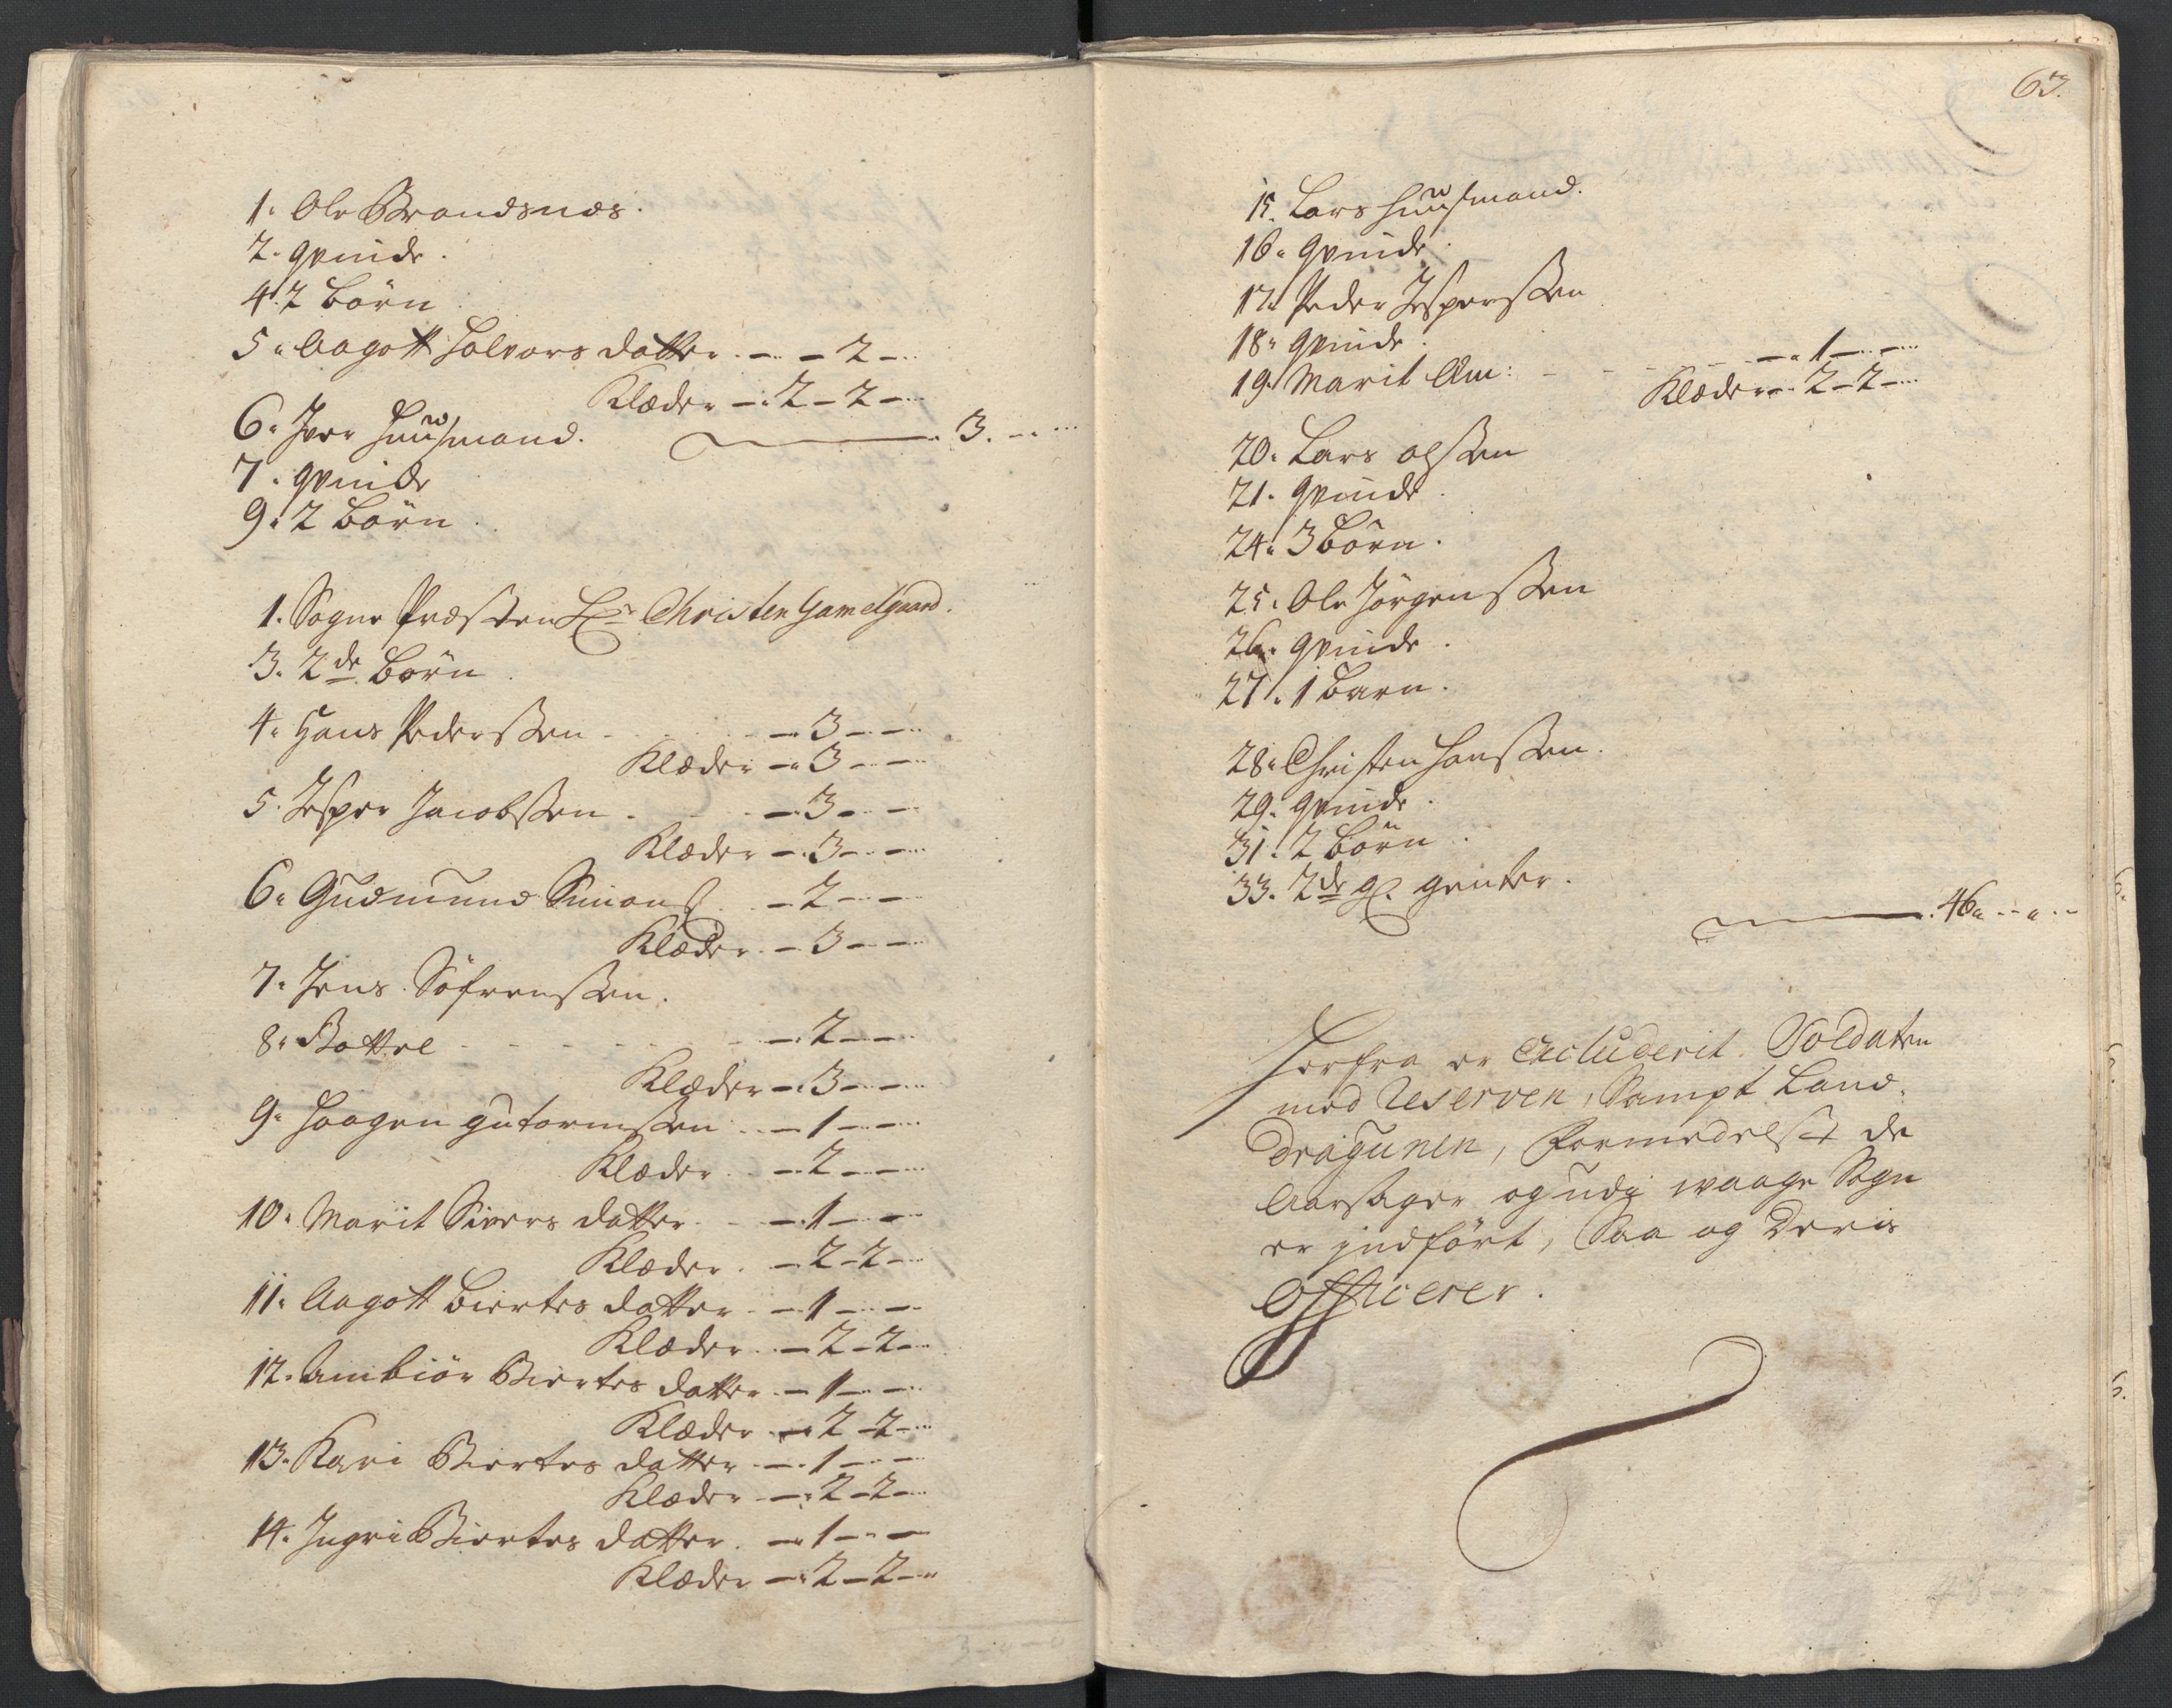 1. Ole Brandsnæs.
2. qvinde.
4. 2 børn
5. Aagott Halvors datter. – – 2 –
Klæder – 2 – 2 –
6. Iver Huusmand. 3. –
7. qvinde
9. 2 børn.
1. Sogne Præsten Hr. Christen Gamelgaard.
3. 2de børn.
4. Hans Pedersen – 3 – –
Klæder – 3 – –
5. Jesper Jacobsen – 3 – –
Klæder – 3 – –
6. Gudmund Simons. – 2 – –
Klæder – 3 – –
7. Jens Söfrensen.
8. Bottel – 2 – –
Klæder – 3 – –
9. Haagen gutormsen – 1 – –
Klæder – 2 – –
10. Marit Sivers datter – 1 – –
Klæder – 2 – 2 –
11. Aagott biertes datter – 1 – –
Klæder – 2 – 2 –
12. Anbiör Biertes datter – 1 – –
Klæder – 2 – 2 –
13. Kari Biertes datter – 1 – –
Klæder – 2 – 2 –
14. Ingri Biertes datter. – 1 – –
Klæder – 2 – 2 –
3 – 0 – 0
63.
15. Lars Huusmand.
16. qvinde.
17. Peder Jespersen
18. qvinde.
19. Marit Am: – 1 – –
Klæder – 2 – 2 –
20. Lars olsen
21. qvinde.
24. 3 börn.
25. Ole Jörgensen
26. qvinde.
27. 1 barn.
28. Christen Hansen.
29. qvinde.
31. 2 börn.
33. 2de gl. genter.
46. – –
Herfra er Excluderit. Soldaten
med Reserven, Sampt Land-
Dragunen, formedelst de
Aarsager og udj waage Sogn
er indfört, Saa og Deris
Officerer.